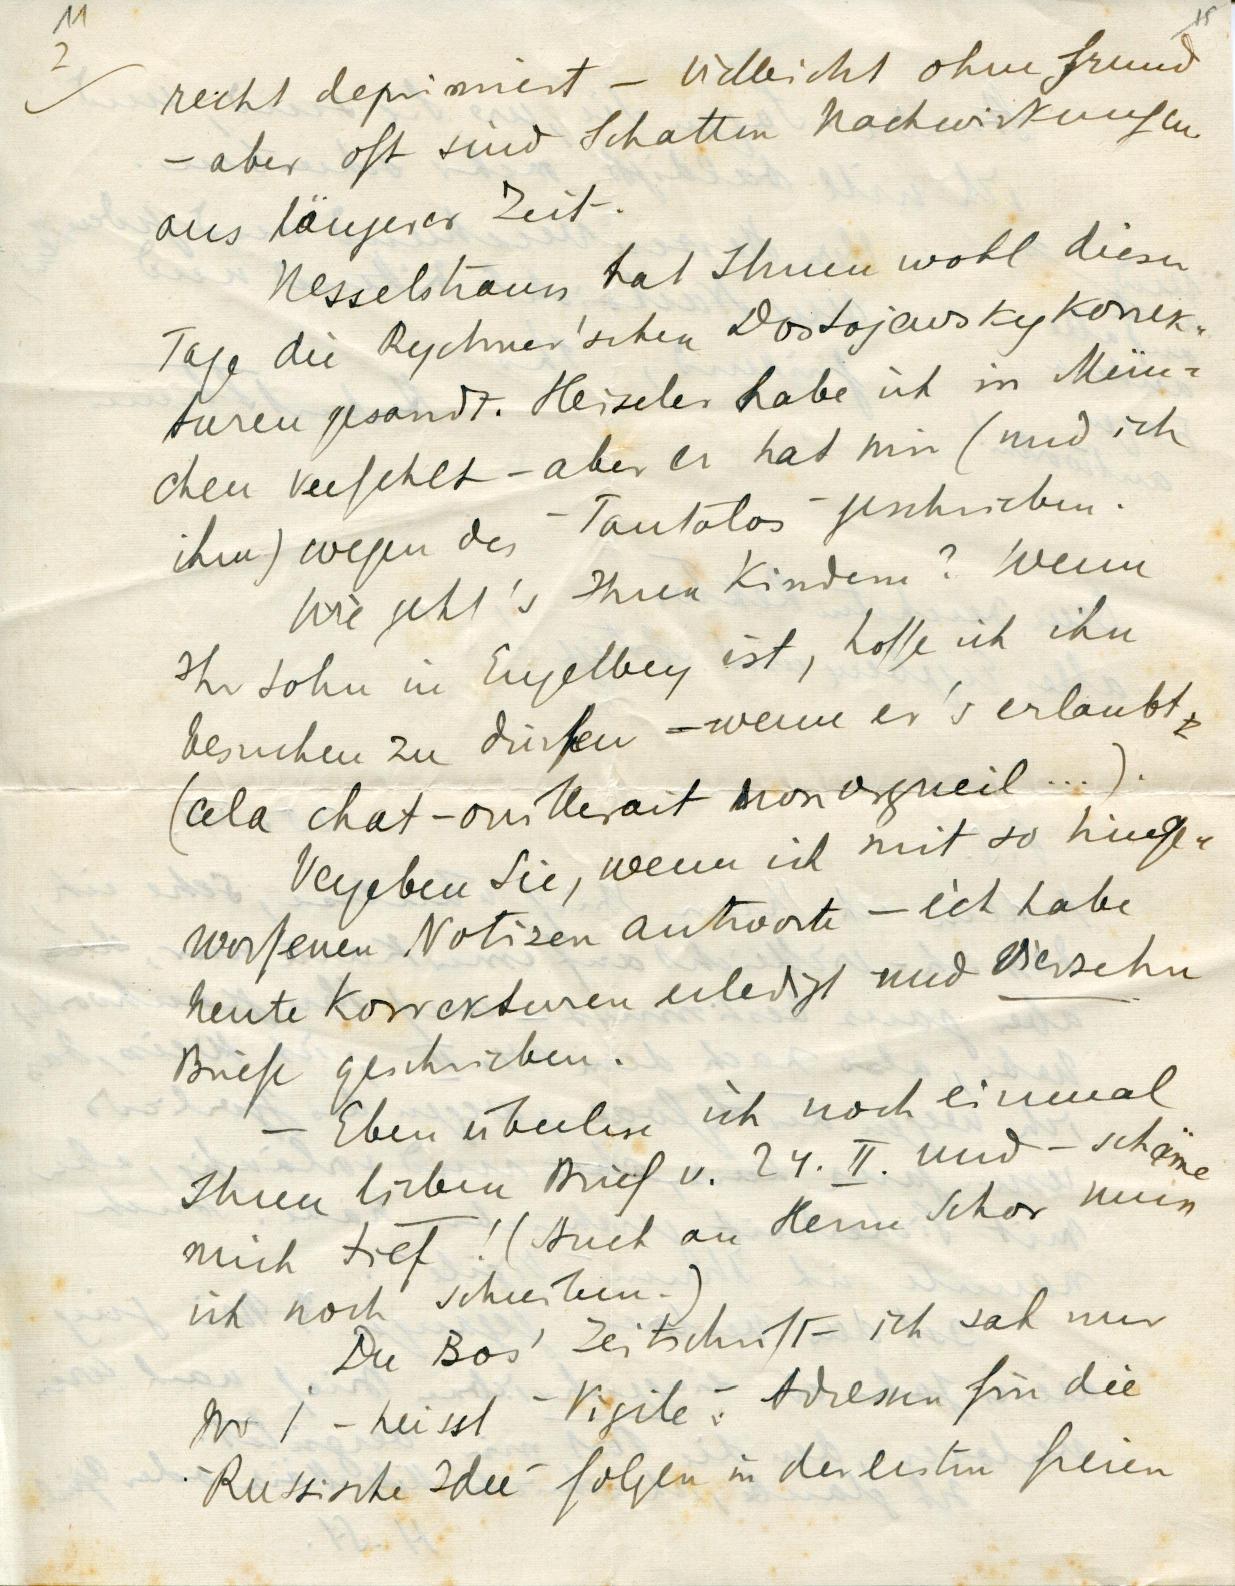 11
2
15
recht deprimiert – vielleicht ohne Grund
– aber oft sind Schatten Nachwirkungen
aus längerer Zeit.
Nesselstrauss hat Ihnen wohl dieser
Tage die Rychner'schen Dostojewskykorrek-
turen gesandt. Heiseler habe ich in Mün-
chen verfehlt – aber er hat mir (und ich
ihm) wegen des "Tantalos" geschrieben.
Wie geht's Ihren Kindern? Wenn
Ihr Sohn in Engelberg ist, hoffe ich ihn
besuchen zu dürfen – wenn er's erlaubt
(cela chat-ouillerait mon orgueil ...).
Vergeben Sie, wenn ich mit so hinge-
worfenen Notizen antworte – ich habe
heute Korrekturen erledigt und vierzehn
Briefe geschrieben.
– Eben überlese ich noch einmal
Ihren lieben Brief v. 24. II. und – schäme
mich tief! (Auch an Herrn Schor muss
ich noch schreiben.)
Du Bos' Zeitschrift – ich sah nur
No 1 – heisst "Vigile". Adressen für die
"Russische Idee" folgen in der ersten freien